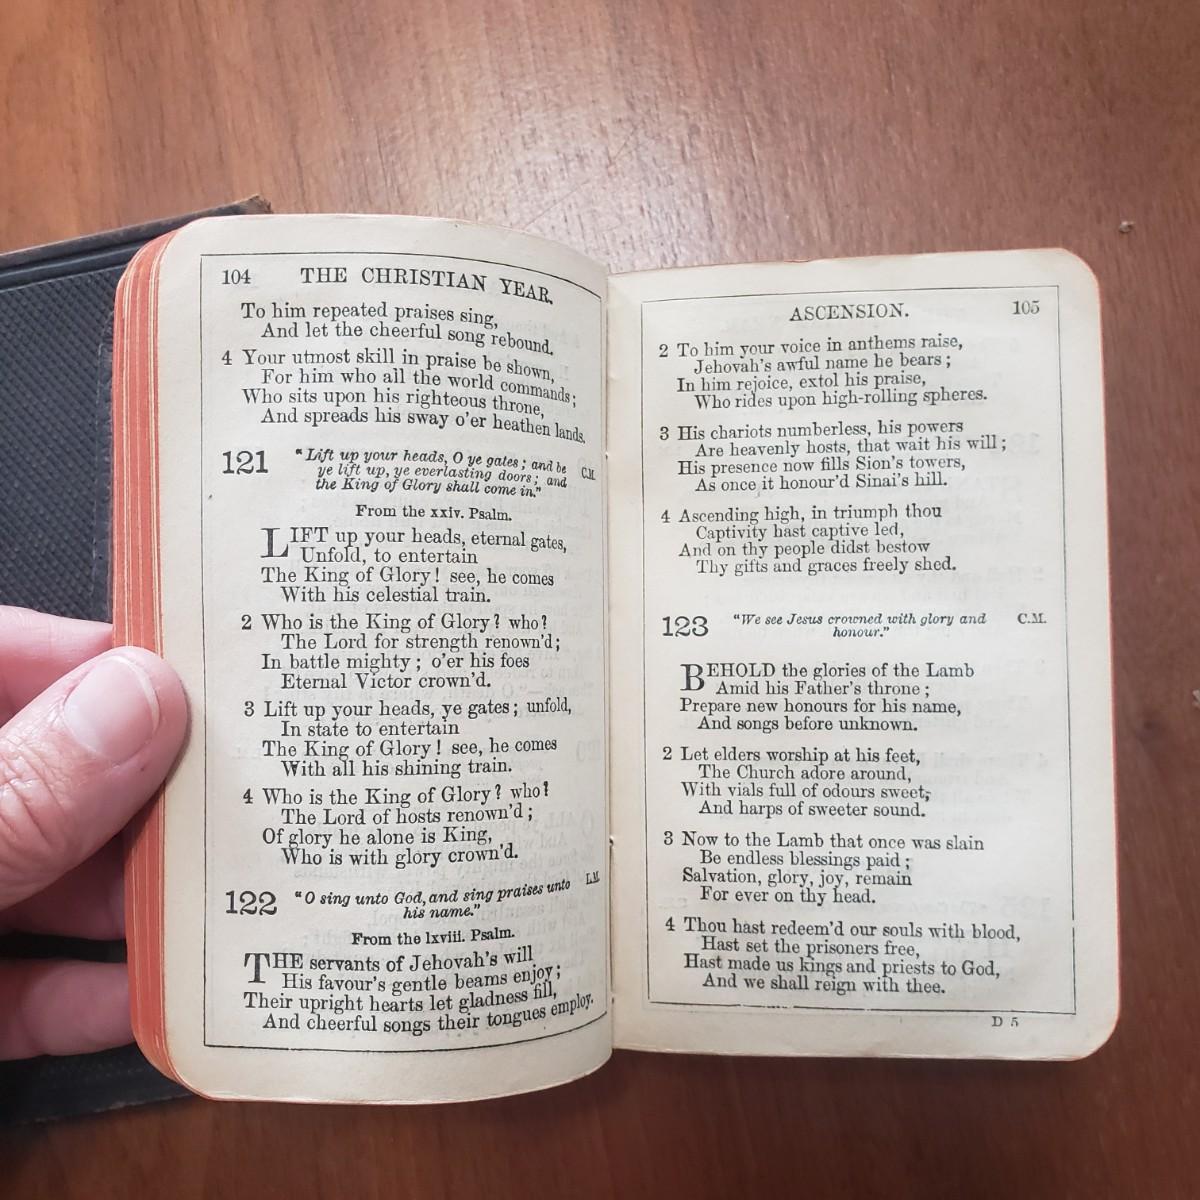 104 THE CHRISTIAN YEAR.
To him repeated praises sing,
And let the cheerful song rebound.
4 Your utmost skill in praise be shown,
For him who all the world commands;
Who sits upon his righteous throne,
And spreads his sway o'er heathen lands.
121 "Lift up your heads, O ye gates; and be C.M.
ye lift up, ye everlasting doors; and
the King of Glory shall come in."
From the xxiv. Psalm.
LIFT up your heads, eternal gates,
Unfold, to entertain
The King of Glory! see, he comes
With his celestial train.
2 Who is the King of Glory? who?
The Lord for strength renown'd;
In battle mighty; o'er his foes
Eternal Victor crown'd.
3 Lift up your heads, ye gates; unfold,
In state to entertain
The King of Glory! see, he comes
With all his shining train.
4 Who is the King of Glory? who?
The Lord of hosts renown'd;
Of glory he alone is King,
Who is with glory crown'd.
122 "O sing unto God, and sing praises unto L.M.
his name."
From the lxviii. Psalm.
THE servants of Jehovah's will
His favour's gentle beams enjoy;
Their upright hearts let gladness fill,
And cheerful songs their tongues employ.
ASCENSION. 105
2 To him your voice in anthems raise,
Jehovah's awful name he bears;
In him rejoice, extol his praise,
Who rides upon high-rolling spheres.
3 His chariots numberless, his powers
Are heavenly hosts, that wait his will;
His presence now fills Sion's towers,
As once it honour'd Sinai's hill.
4 Ascending high, in triumph thou
Captivity hast captive led,
And on thy people didst bestow
Thy gifts and graces freely shed.
123 "We see Jesus crowned with glory and C.M.
honour."
BEHOLD the glories of the Lamb
Amid his Father's throne;
Prepare new honours for his name,
And songs before unknown.
2 Let elders worship at his feet,
The Church adore around,
With vials full of odours sweet,
And harps of sweeter sound.
3 Now to the Lamb that once was slain
Be endless blessings paid;
Salvation, glory, joy, remain
For ever on thy head.
4 Thou hast redeem'd our souls with blood,
Hast set the prisoners free,
Hast made us kings and priests to God,
And we shall reign with thee.
D 5